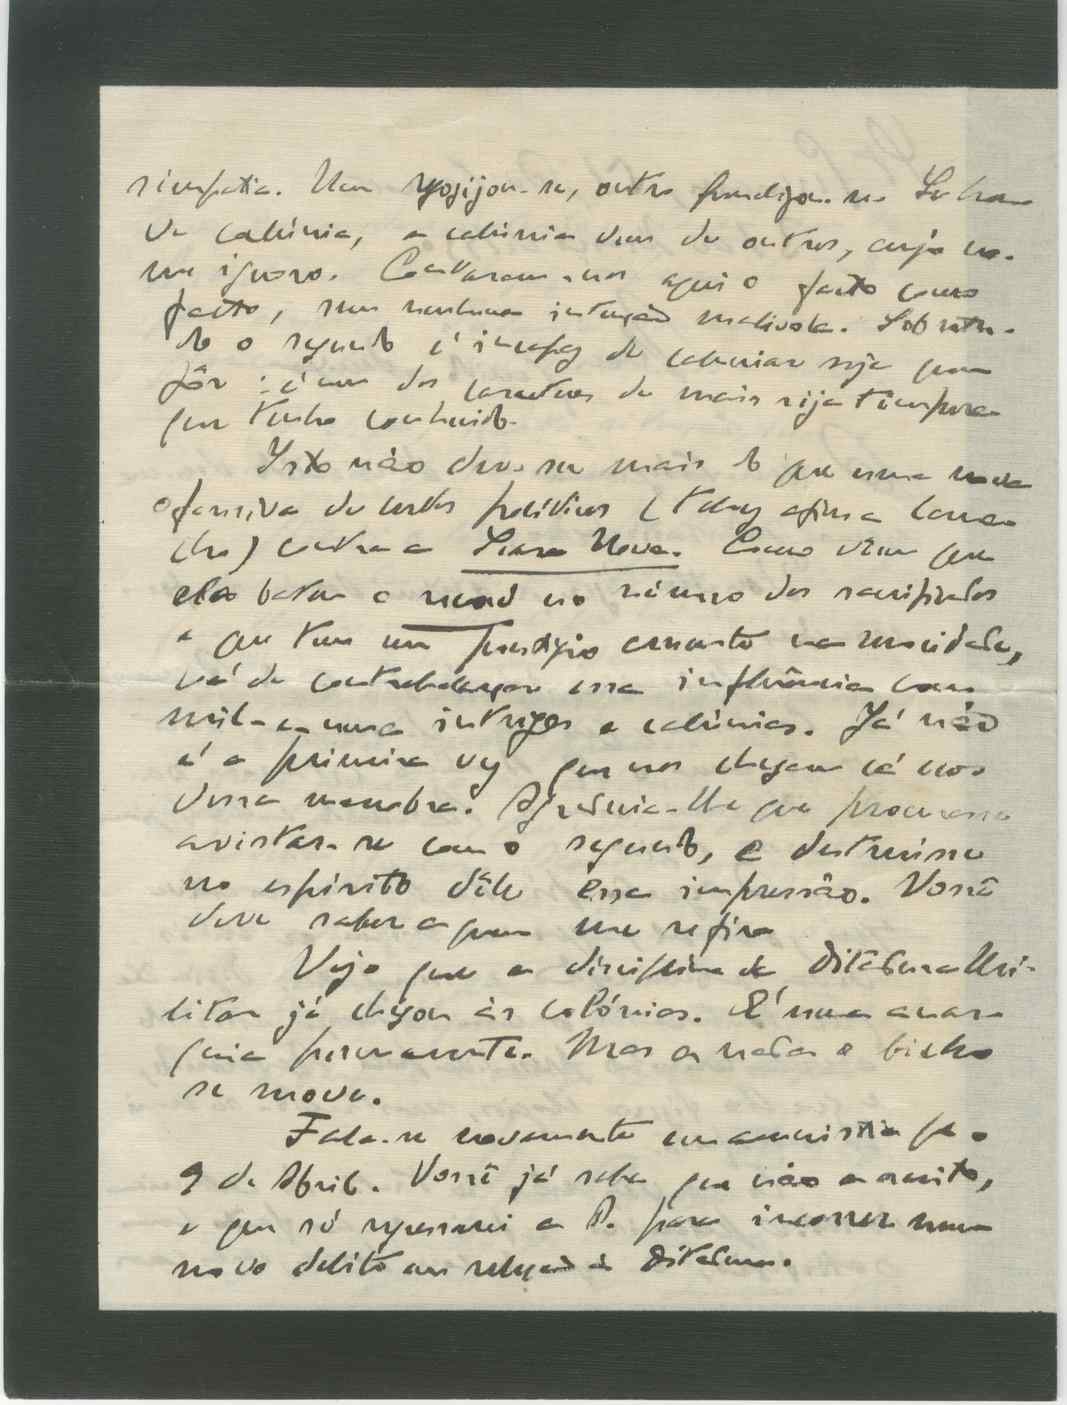 simpatia. Um regozijou-se, outro penalizou-se. Se houve
calúnia, a calúnia vem de outros, cujo no-
me ignoro. Contaram-nos aqui o facto como
facto, sem nenhuma intenção malévola. Sobretu-
do o segundo é incapaz de caluniar seja quem
fôr: é um dos caracteres de mais rija tempera
que tenho conhecido.
Isto não deve ser mais do que uma nova
ofensiva de certos políticos (talvez afim a
) contra a Seara Nova. Como vêem que
elas batem o record no número dos sacrificados
e que tem um prestígio crescente na mocidade,
vá de contrabalançar essa influência com
mil e uma intrigas e calúnias. Já não
é a primeira vez que nos chegam cá ecos
dessa manobra. Agradecia-lhe que procurasse
avistar-se com o segundo, e destruisse
no espírito dêle essa impressão. Você
deve saber a quem me refiro
Vejo que a disciplina da Ditadura Mi-
litar já chegou às colónias. É uma anar-
quia permanente. Mas a nada o bicho
se move.
Fala-se novamente em amnistia pa-
9 de Abril. Você já sabe que não a aceito,
e que só regressarei a P. para incorrer num
novo delito em relação à Ditadura.